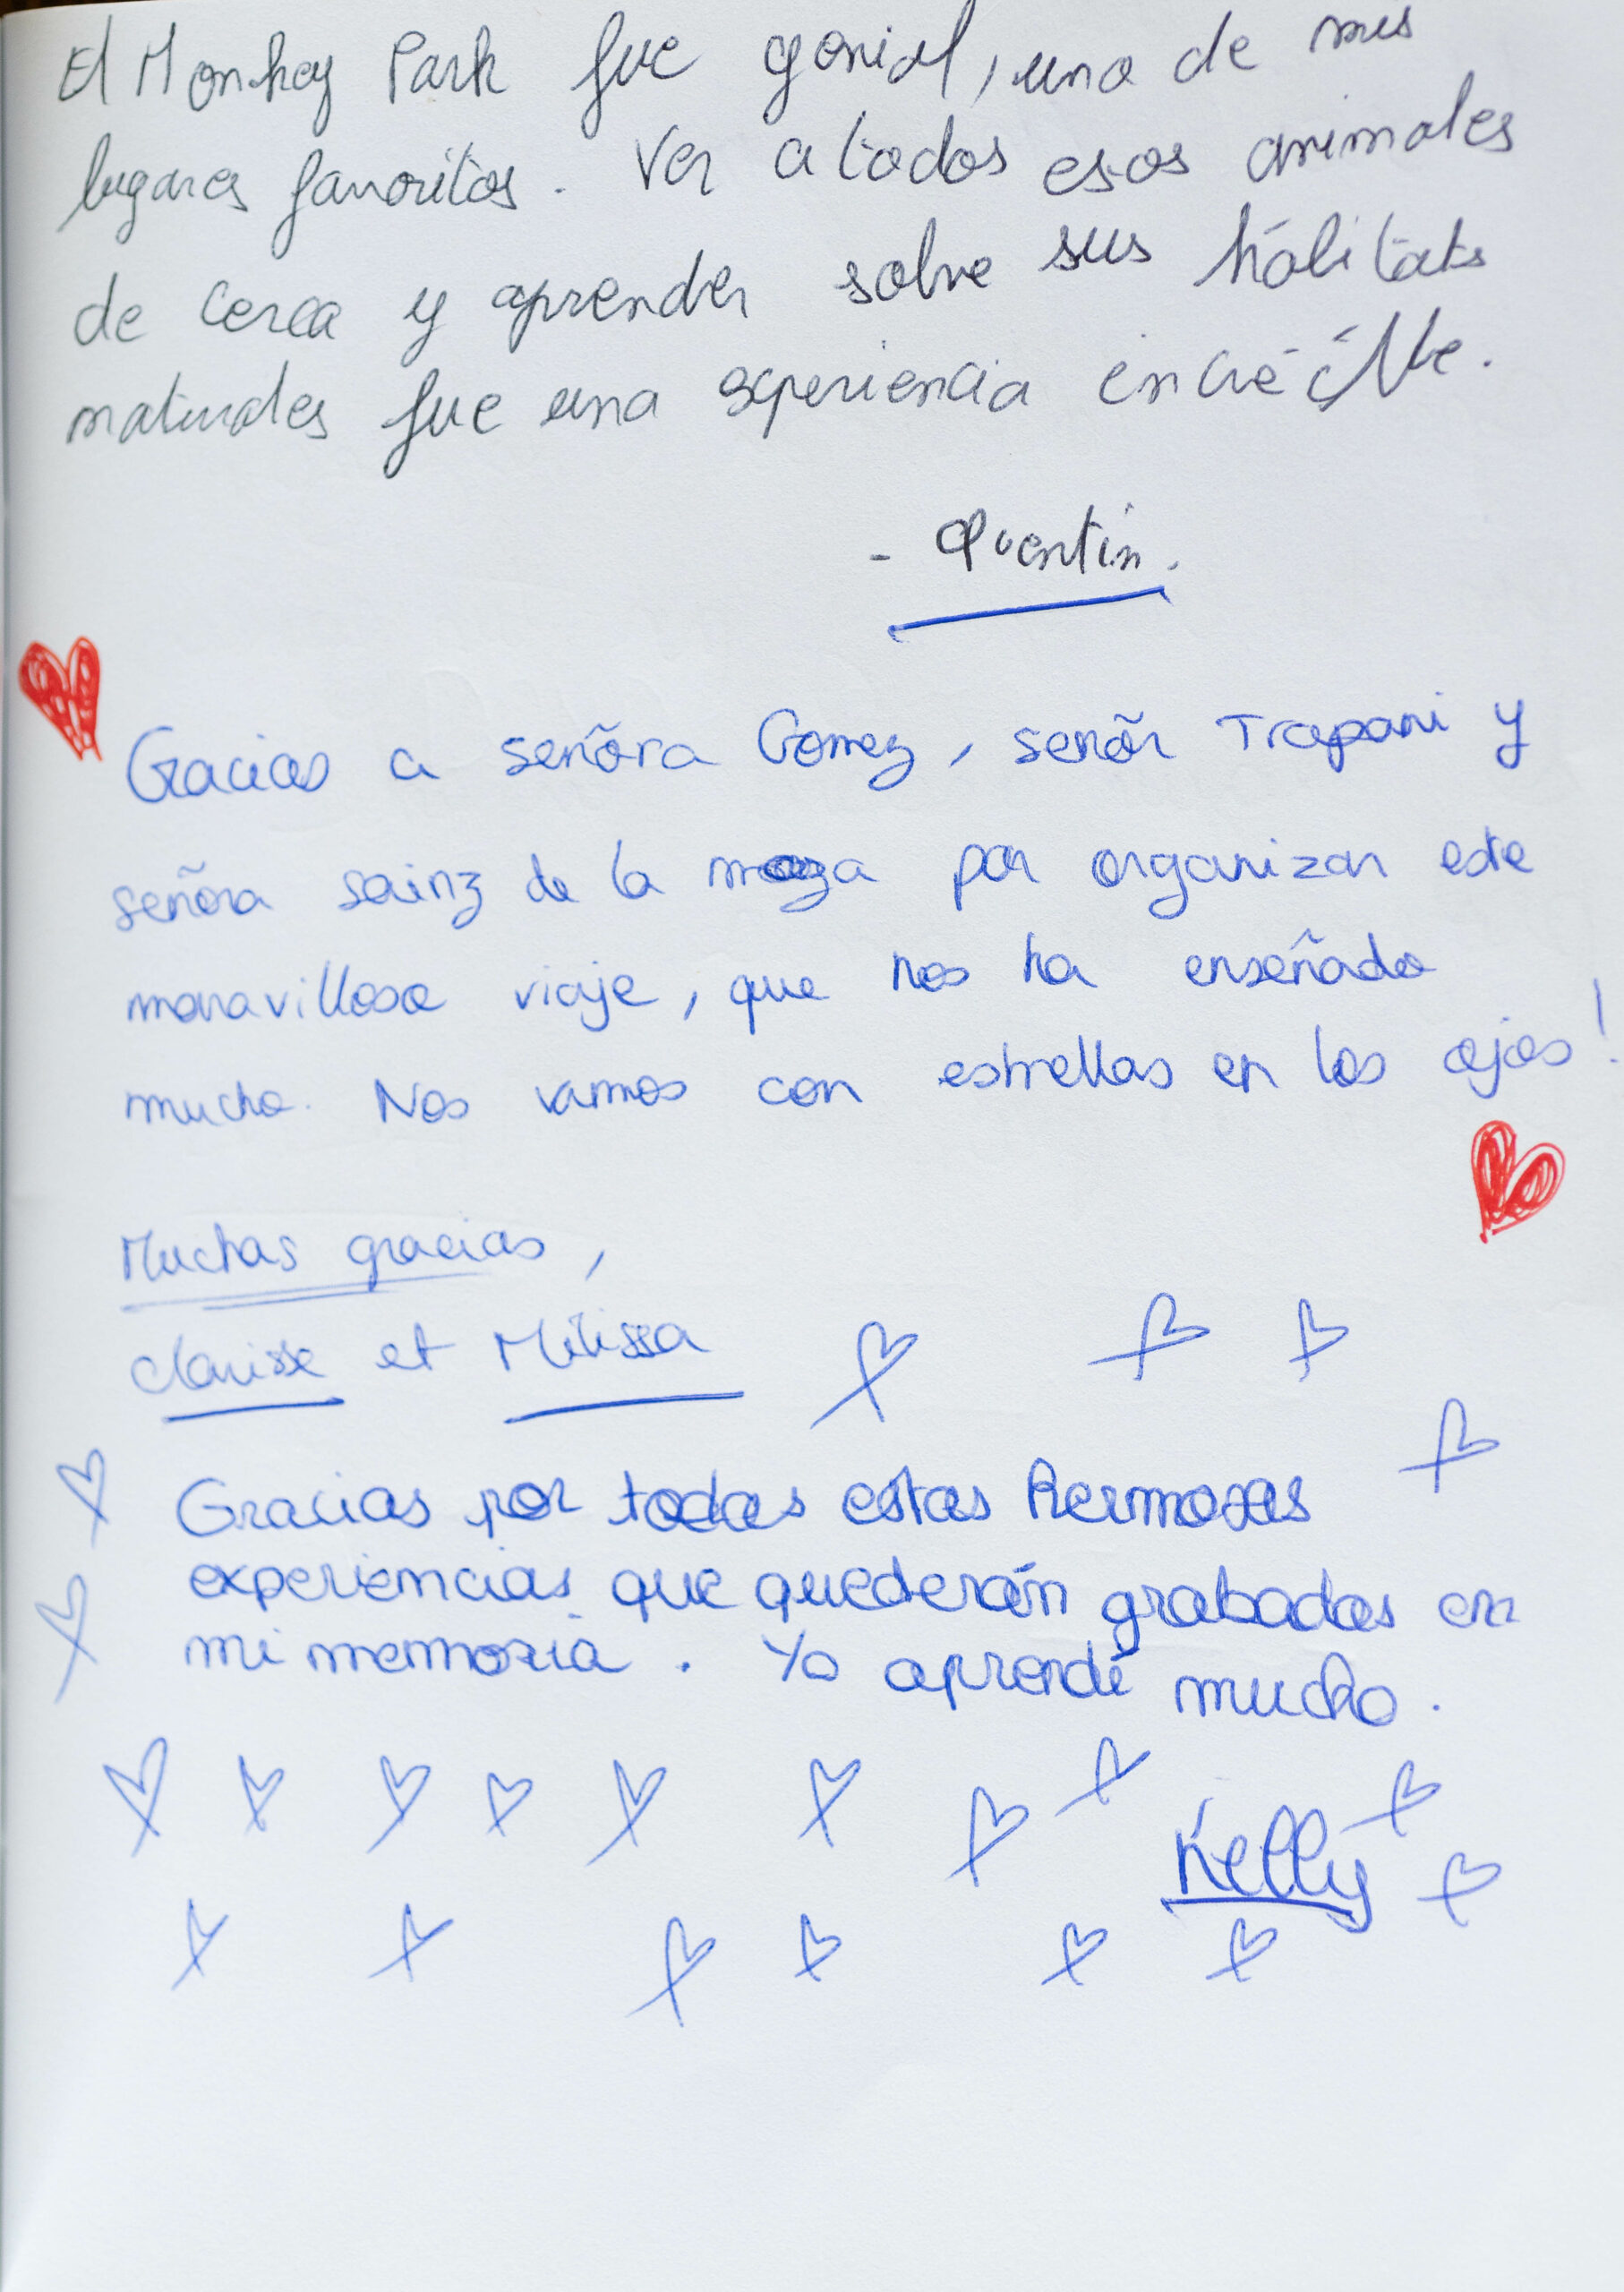 El Monkey Park fue genial, uno de mis
lugares favoritos. Ver a todos esos animales
de cerca y aprender sobre sus hábitats
naturales fue una experiencia
- Quentin.
Gracias a señora Gomez, señor Trapani y
señora sainz de la maza por organizar este
maravilloso viaje, que nos ha enseñado
mucho. Nos vamos con estrellas en los ojos!
Muchas gracias,
Clarisse et Mélissa
Gracias por todas estas hermosas
experiencias que quederán grabadas en
mi memoria. Yo aprendé mucho.
Kelly